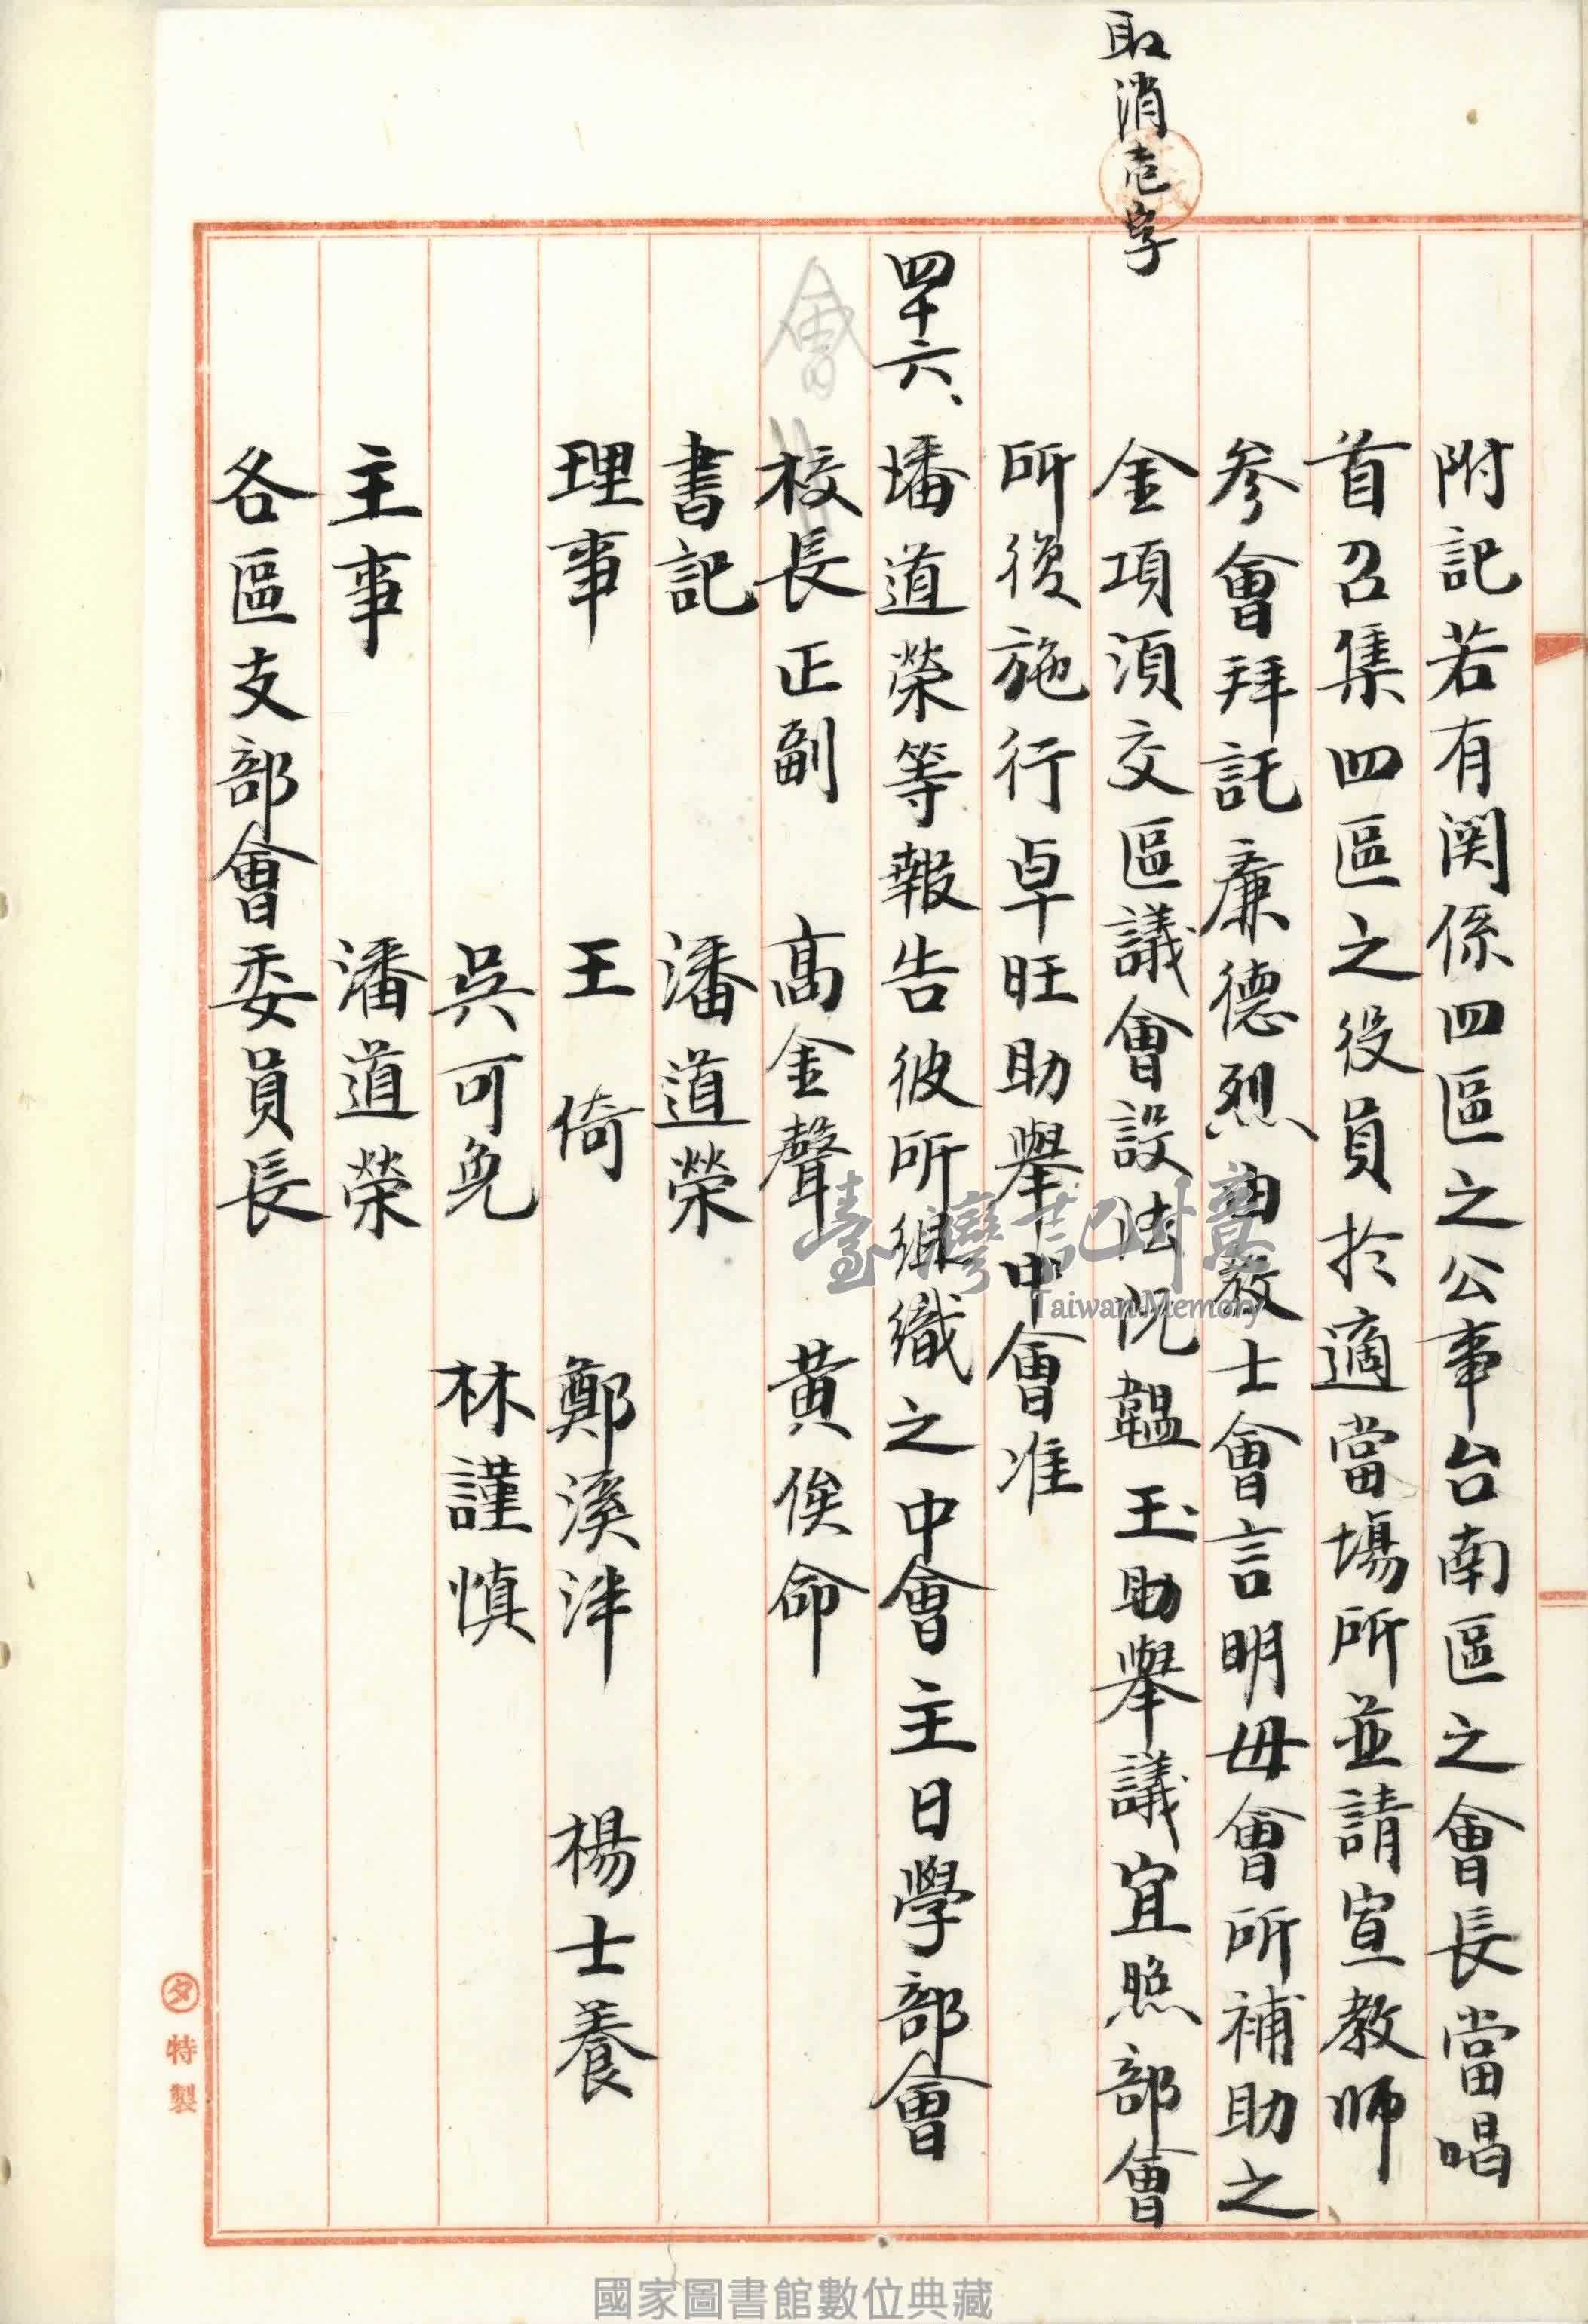 取消壱字
附記若有関係四區之公事台南區之會長當唱
首召集四區之役員於適當場所並請宣教師
參會拜託廉德烈由教士會言明母會所補助之
金項須交區議會設法阮韞玉助舉議宜照部會
所後施行卓旺助舉中會准
四十六、墦道榮等報告彼所組織之中會主日學部會
會
校長正副 高金聲 黃俟命
書記 潘道榮
理事 王倚 鄭溪泮 楊士養
吳可免 林謹慎
主事 潘道榮
各區支部會委員長
タ特製
臺灣記憶
Taiwan Memory
國家圖書館數位典藏